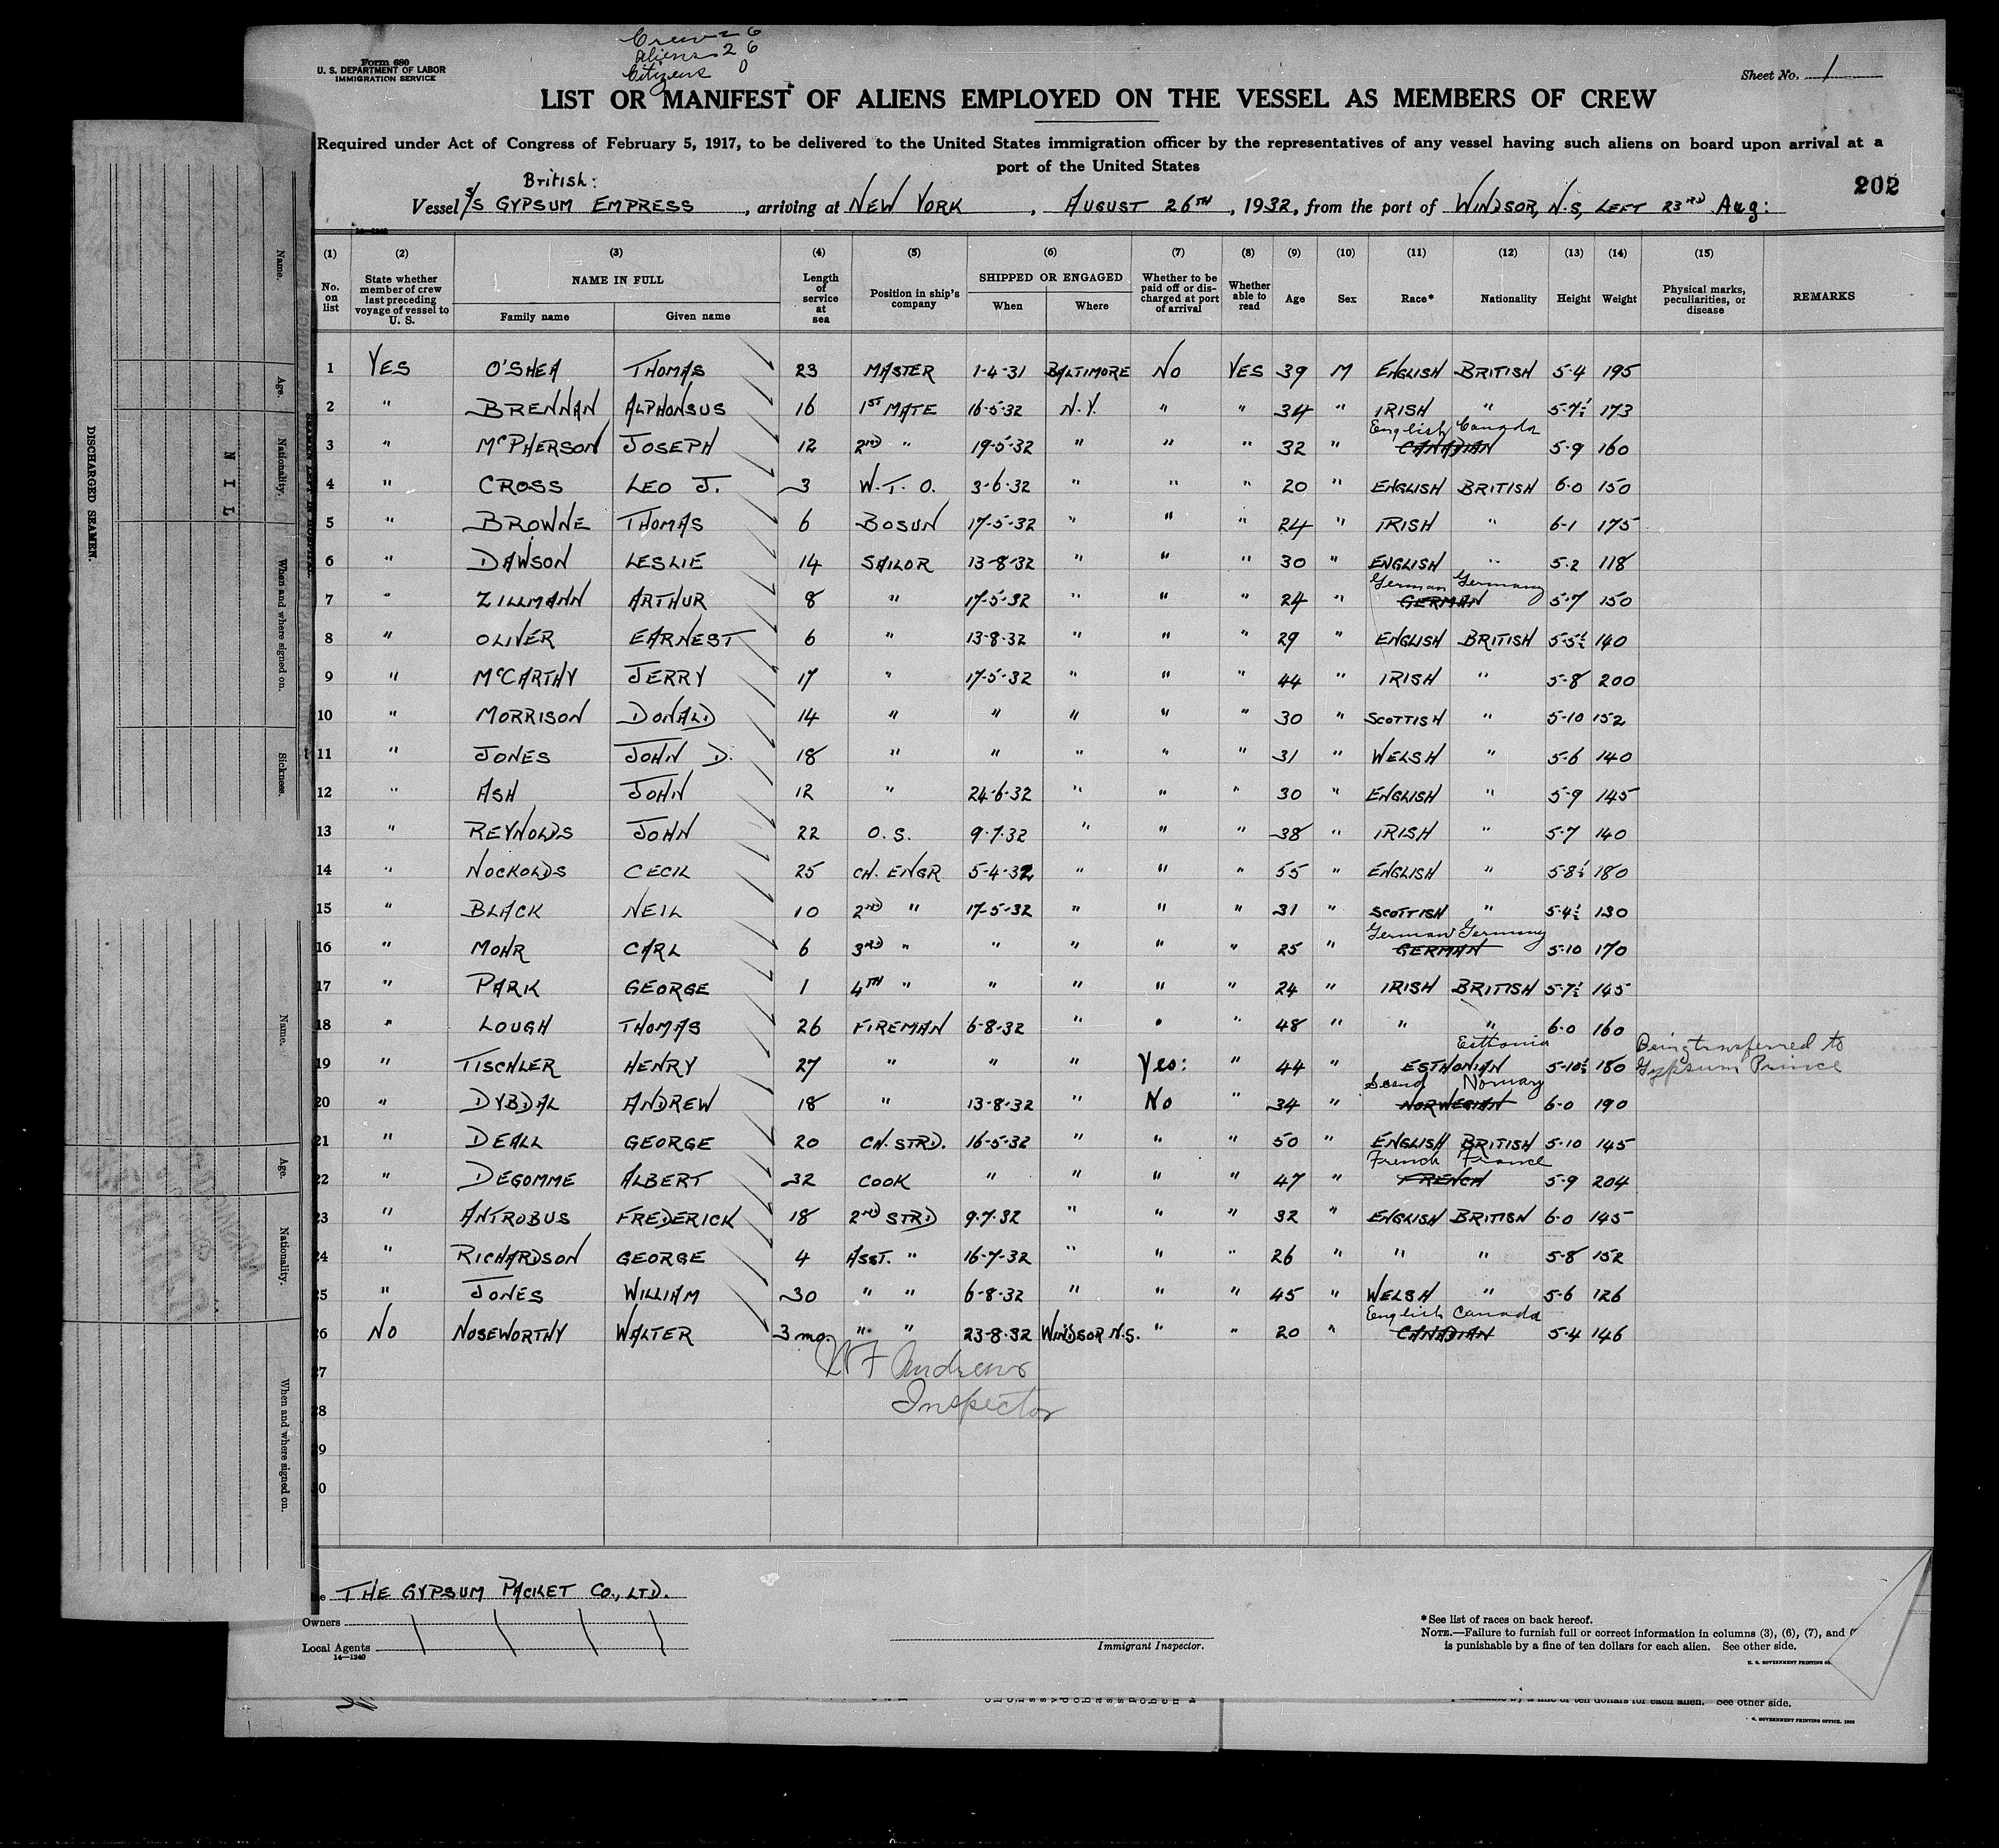 Crew 26
Aliens 26
Citizens 0
Form 680
U. S. DEPARTMENT OF LABOR
IMMIGRATION SERVICE
Sheet No. 1
LIST OR MANIFEST OF ALIENS EMPLOYED ON THE VESSEL AS MEMBERS OF CREW
Required under Act of Congress of February 5, 1917, to be delivered to the United States immigration officer by the representatives of any vessel having such aliens on board upon arrival at a
port of the United States
202
British:
Vessel S/S GYPSUM EMPRESS, arriving at NEW YORK, AUGUST 26TH, 1932, from the port of WINDSOR, N.S, LEFT 23RD Aug:
14—1240
(1) (2) (3) (4) (5) (6) (7) (8) (9) (10) (11) (12) (13) (14) (15)
No. on list State whether member of crew last preceding voyage of vessel to U. S. NAME IN FULL Family name Given name Length of service at sea Position in ship's company SHIPPED OR ENGAGED When Where Whether to be paid off or discharged at port of arrival Whether able to read Age Sex Race* Nationality Height Weight Physical marks, peculiarities, or disease REMARKS
1 YES O'SHEA THOMAS 23 MASTER 1-4-31 BALTIMORE NO YES 39 M ENGLISH BRITISH 5-4 195
2 " BRENNAN ALPHONSUS 16 1ST MATE 16-5-32 N.Y. " " 34 " IRISH " 5-7½ 173
English Canada
3 " McPHERSON JOSEPH 12 2ND " 19-5-32 " " " 32 " CANADIAN 5-9 160
4 " CROSS LEO J. 3 W.T.O. 3-6-32 " " " 20 " ENGLISH BRITISH 6-0 150
5 " BROWNE THOMAS 6 BOSUN 17-5-32 " " " 24 " IRISH " 6-1 175
6 " DAWSON LESLIE 14 SAILOR 13-8-32 " " " 30 " ENGLISH " 5-2 118
German Germany
7 " ZILLMANN ARTHUR 8 " 17-5-32 " " " 24 " GERMAN 5-7 150
8 " OLIVER EARNEST 6 " 13-8-32 " " " 29 " ENGLISH BRITISH 5-5½ 140
9 " McCARTHY JERRY 17 " 17-5-32 " " " 44 " IRISH " 5-8 200
10 " MORRISON DONALD 14 " " " " " 30 " SCOTTISH " 5-10 152
11 " JONES JOHN D. 18 " " " " " 31 " WELSH " 5-6 140
12 " ASH JOHN 12 " 24-6-32 " " " 30 " ENGLISH " 5-9 145
13 " REYNOLDS JOHN 22 O.S. 9-7-32 " " " 38 " IRISH " 5-7 140
14 " NOCKOLDS CECIL 25 CH. ENGR 5-4-32 " " " 55 " ENGLISH " 5-8½ 180
15 " BLACK NEIL 10 2ND " 17-5-32 " " " 31 " SCOTTISH " 5-4½ 130
German Germany
16 " MOHR CARL 6 3RD " " " " " 25 " GERMAN 5-10 170
17 " PARK GEORGE 1 4TH " " " " " 24 " IRISH BRITISH 5-7½ 145
18 " LOUGH THOMAS 26 FIREMAN 6-8-32 " " " 48 " " " 6-0 160
Esthonia Being transferred to
19 " TISCHLER HENRY 27 " " " Yes: " 44 " ESTHONIAN 5-10½ 180 Gypsum Prince
Scand Norway
20 " DYBDAL ANDREW 18 " 13-8-32 " No " 34 " NORWEGIAN 6-0 190
21 " DEALL GEORGE 20 CH. STRD. 16-5-32 " " " 50 " ENGLISH BRITISH 5-10 145
French France
22 " DEGOMME ALBERT 32 COOK " " " " 47 " FRENCH 5-9 204
23 " ANTROBUS FREDERICK 18 2ND STRD 9-7-32 " " " 32 " ENGLISH BRITISH 6-0 145
24 " RICHARDSON GEORGE 4 ASST. " 16-7-32 " " " 26 " " " 5-8 152
25 " JONES WILLIAM 30 " " 6-8-32 " " " 45 " WELSH " 5-6 126
English Canada
26 NO NOSEWORTHY WALTER 3 mo. " " 23-8-32 WINDSOR N.S. " " 20 " CANADIAN 5-4 146
27 W F Andrews
28 Inspector
29
30
THE GYPSUM PACKET CO., LTD.
Owners
Local Agents
14—1240
Immigrant Inspector.
*See list of races on back hereof.
NOTE.—Failure to furnish full or correct information in columns (3), (6), (7), and (
is punishable by a fine of ten dollars for each alien. See other side.
U. S. GOVERNMENT PRINTING
of ten dollars for each alien. See other side.
GOVERNMENT PRINTING OFFICE
DISCHARGED SEAMEN.
Name.
Age.
Nationality.
When and where signed on.
Sickness.
N I L
Name.
Age.
Nationality.
When and where signed on.